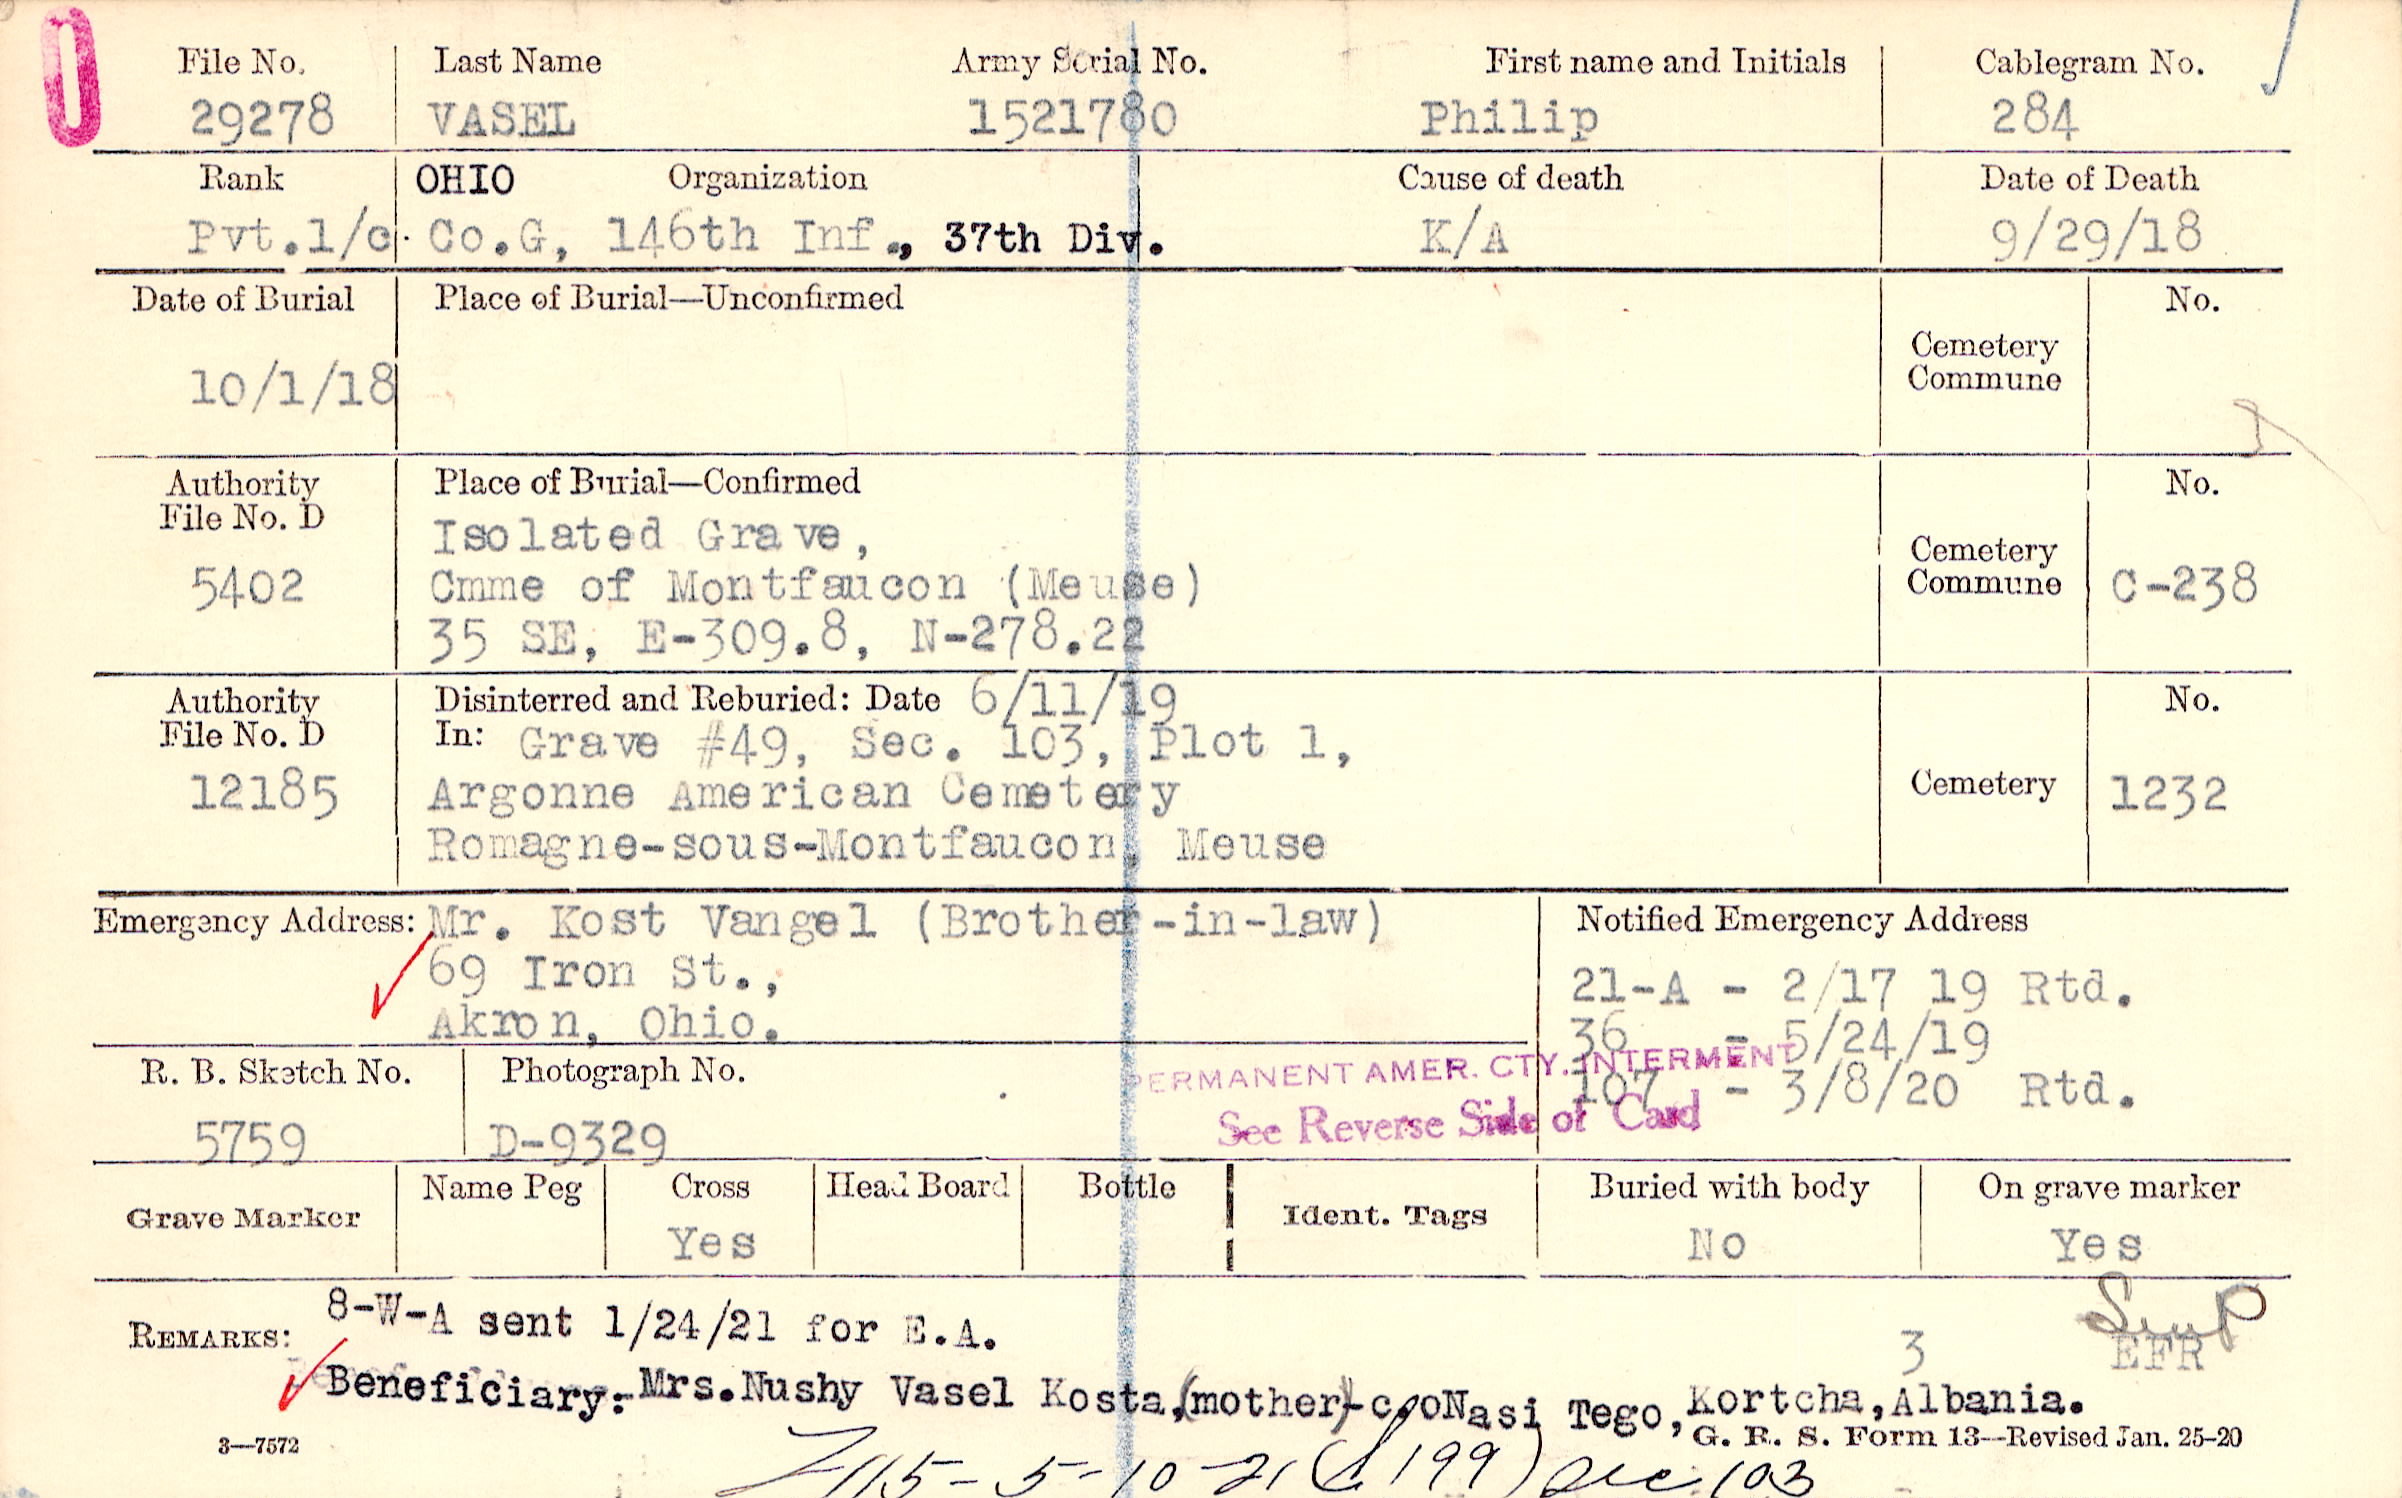 File No. Last Name Army Serial No. First name and Initials Cablegram No.
29278 VASEL 1521780 Philip 284
Rank OHIO Organization Cause of death Date of Death
Pvt.1/c. Co.G, 146th Inf., 37th Div. K/A 9/29/18
Date of Burial Place of Burial—Unconfirmed No.
Cemetery
Commune
10/1/18
Authority Place of Burial—Confirmed No.
File No. D
Isolated Grave,
Cemetery
5402 Cmme of Montfaucon (Meuse) Commune C-238
35 SE, E-309.8, N-278.22
Authority Disinterred and Reburied: Date 6/11/19 No.
File No. D In: Grave #49, Sec. 103, Plot 1,
12185 Argonne American Cemetery Cemetery 1232
Romagne-sous-Montfaucon, Meuse
Emergency Address: Mr. Kost Vangel (Brother-in-law) Notified Emergency Address
69 Iron St., 21-A - 2/17 19 Rtd.
Akron, Ohio. 36 - 5/24/19
R. B. Sketch No. Photograph No. PERMANENT AMER. CTY. INTERMENT
107 - 3/8/20 Rtd.
See Reverse Side of Card
5759 D-9329
Grave Marker Name Peg Cross Head Board Bottle Ident. Tags Buried with body On grave marker
Yes No Yes
REMARKS: 8-W-A sent 1/24/21 for E.A.
3 EFR
Beneficiary:-Mrs.Nushy Vasel Kosta,(mother)-c/oNasi Tego,Kortcha,Albania.
3—7572 G. R. S. Form 13—Revised Jan. 25-20
115-5-10-21 199) 103